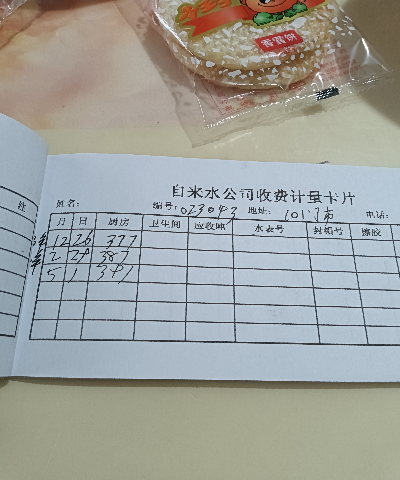 香蜜饼
注
自来水公司收费计量卡片
姓名: 编号: 023043 地址: 101门市 电话:
月 日 厨房 卫生间 应收吨 水表号 封铅号 滕胶
12 26 377
2 28 387
5 1 391